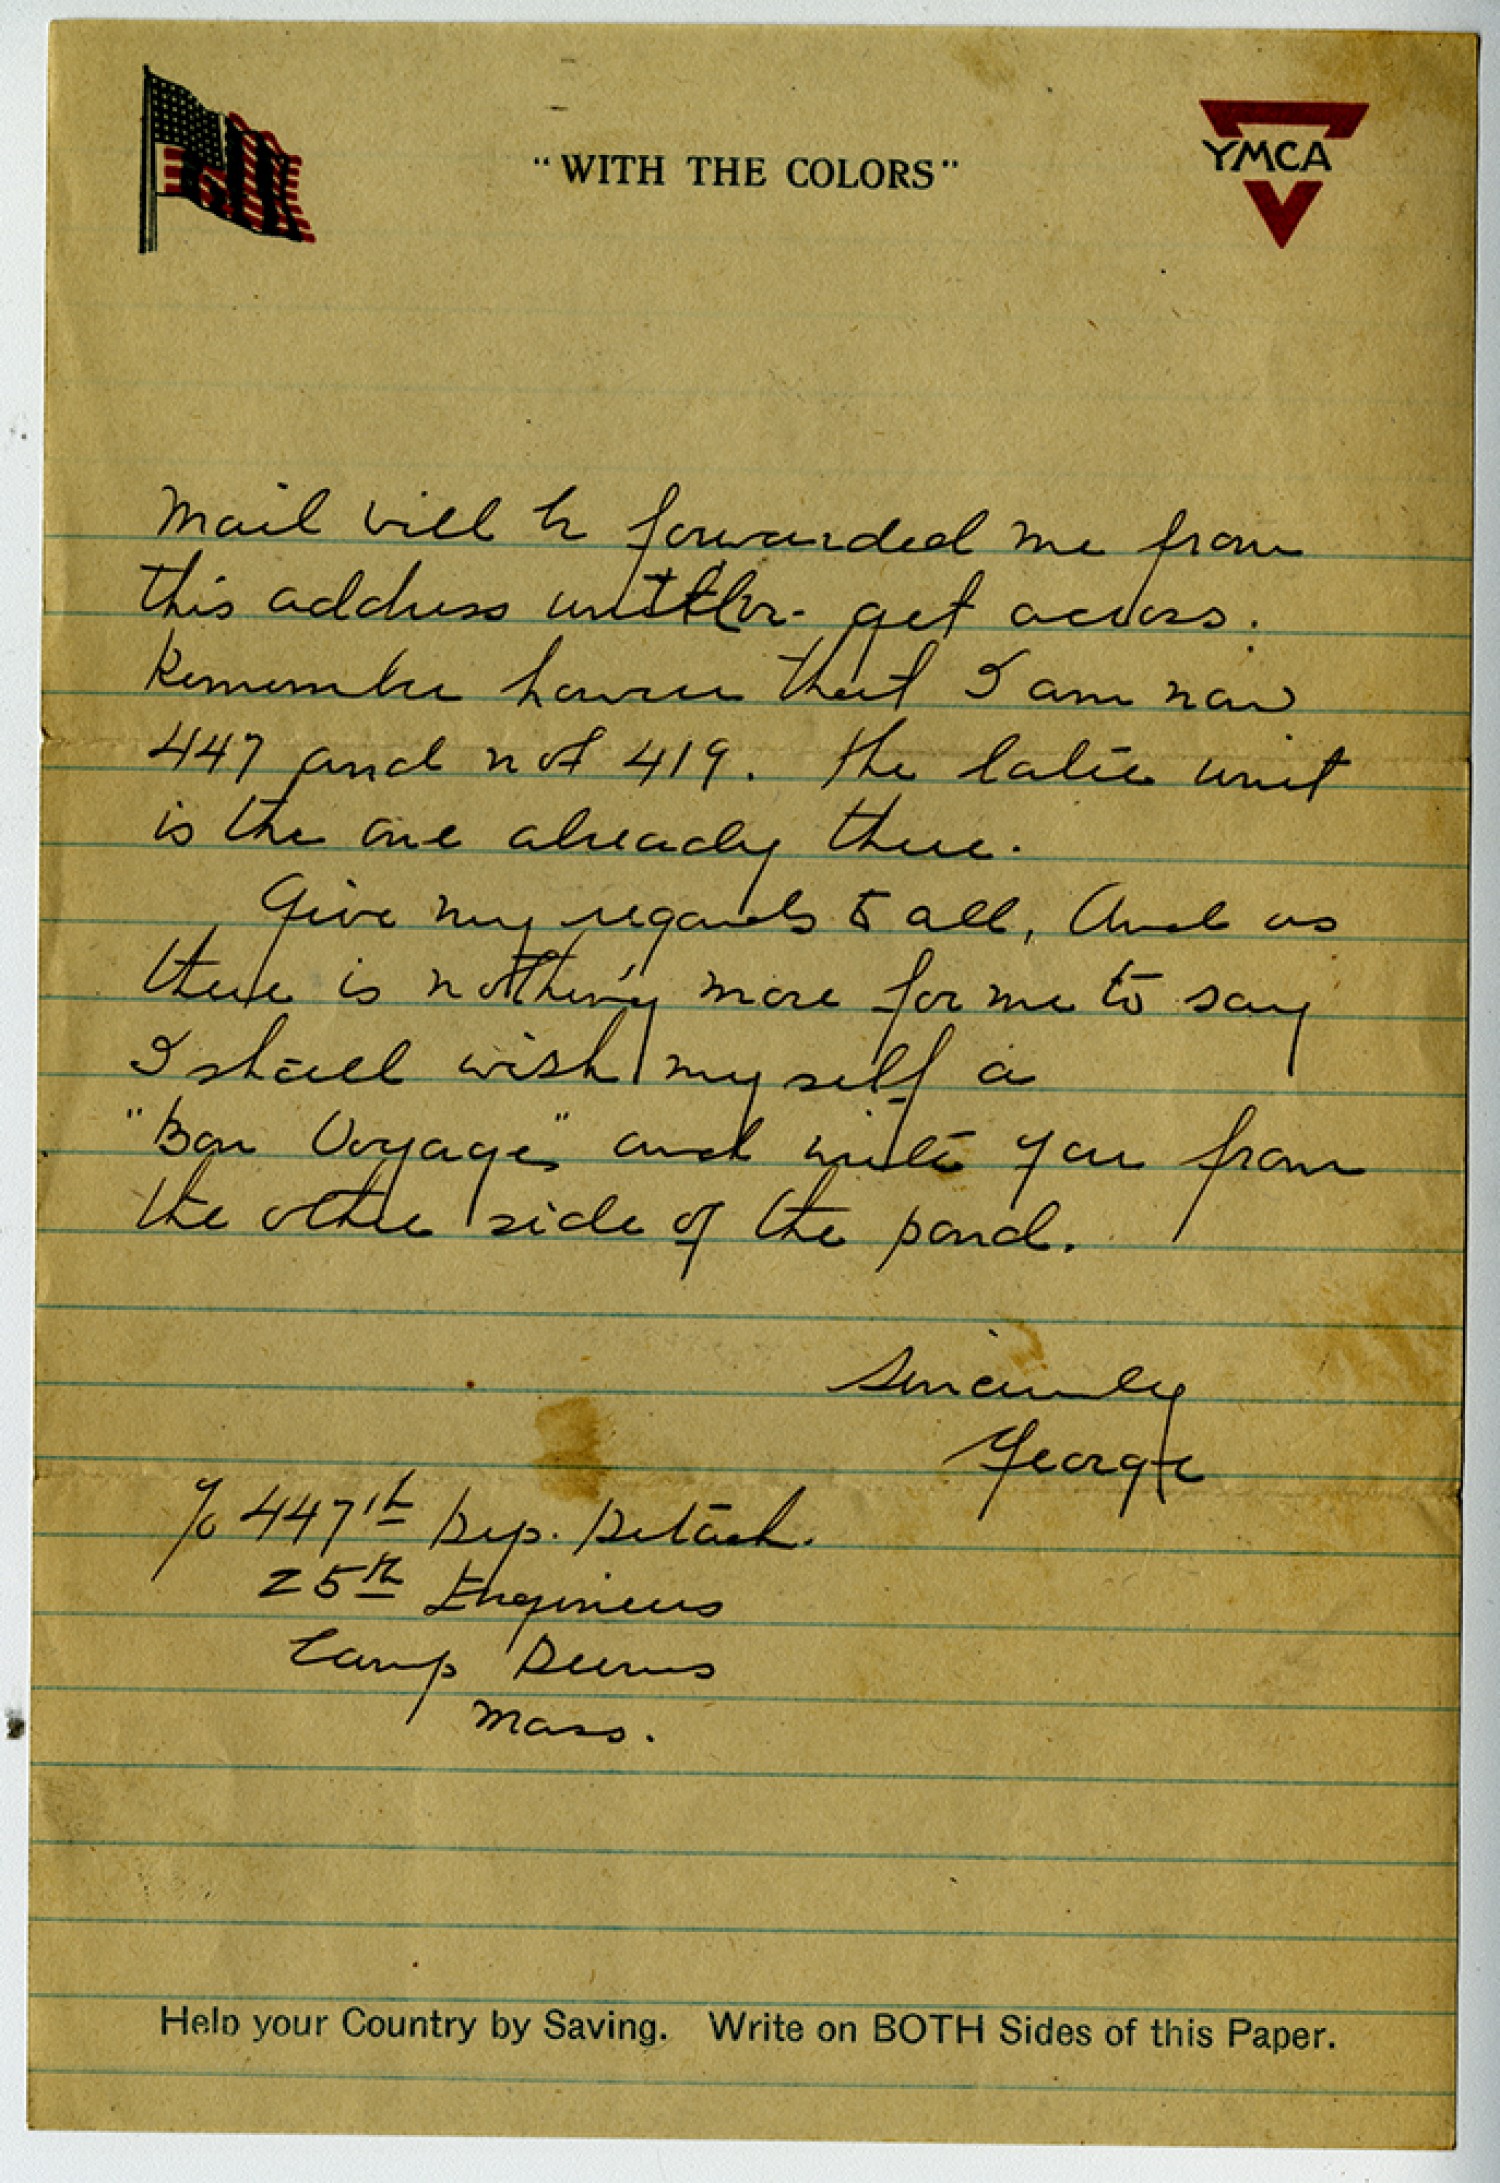 "WITH THE COLORS"
YMCA
Mail will be forwarded me from
this address until we get across.
Remember however that I am now
447 and not 419. The latter unit
is the one already there.
Give my regards to all, And as
there is nothing more for me to say
I shall wish myself a
"Bon Voyage" and write you from
the other side of the pond.
Sincerely
George
c/o 447th Dep. Detach.
25th Engineers
Camp Devens
Mass.
Help your Country by Saving. Write on BOTH Sides of this Paper.